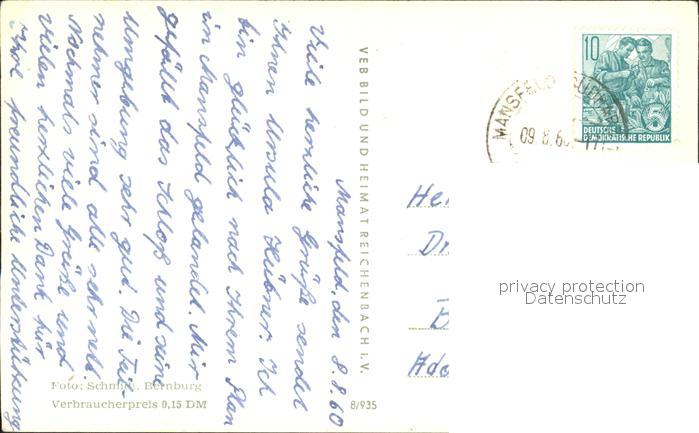 Mansfeld, den 8.8.60
Viele herzliche Grüße sendet
Ihnen Ursula Hübner. Ich
bin glücklich nach Ihrem Plan
in Mansfeld gelandet. Mir
gefällt das Schloß und seine
Umgebung sehr gut. Die Teil-
nehmer sind alle sehr nett.
Nochmals viele Grüße und
vielen herzlichen Dank für
Ihre freundliche Unterstützung
VEB BILD UND HEIMAT REICHENBACH I. V.
Foto: Schmidt, Bernburg
Verbraucherpreis 0,15 DM
8/935
10
DEUTSCHE
DEMOKRATISCHE REPUBLIK
MANSFELD
09.8.60
He
Dr
privacy protection
Datenschutz